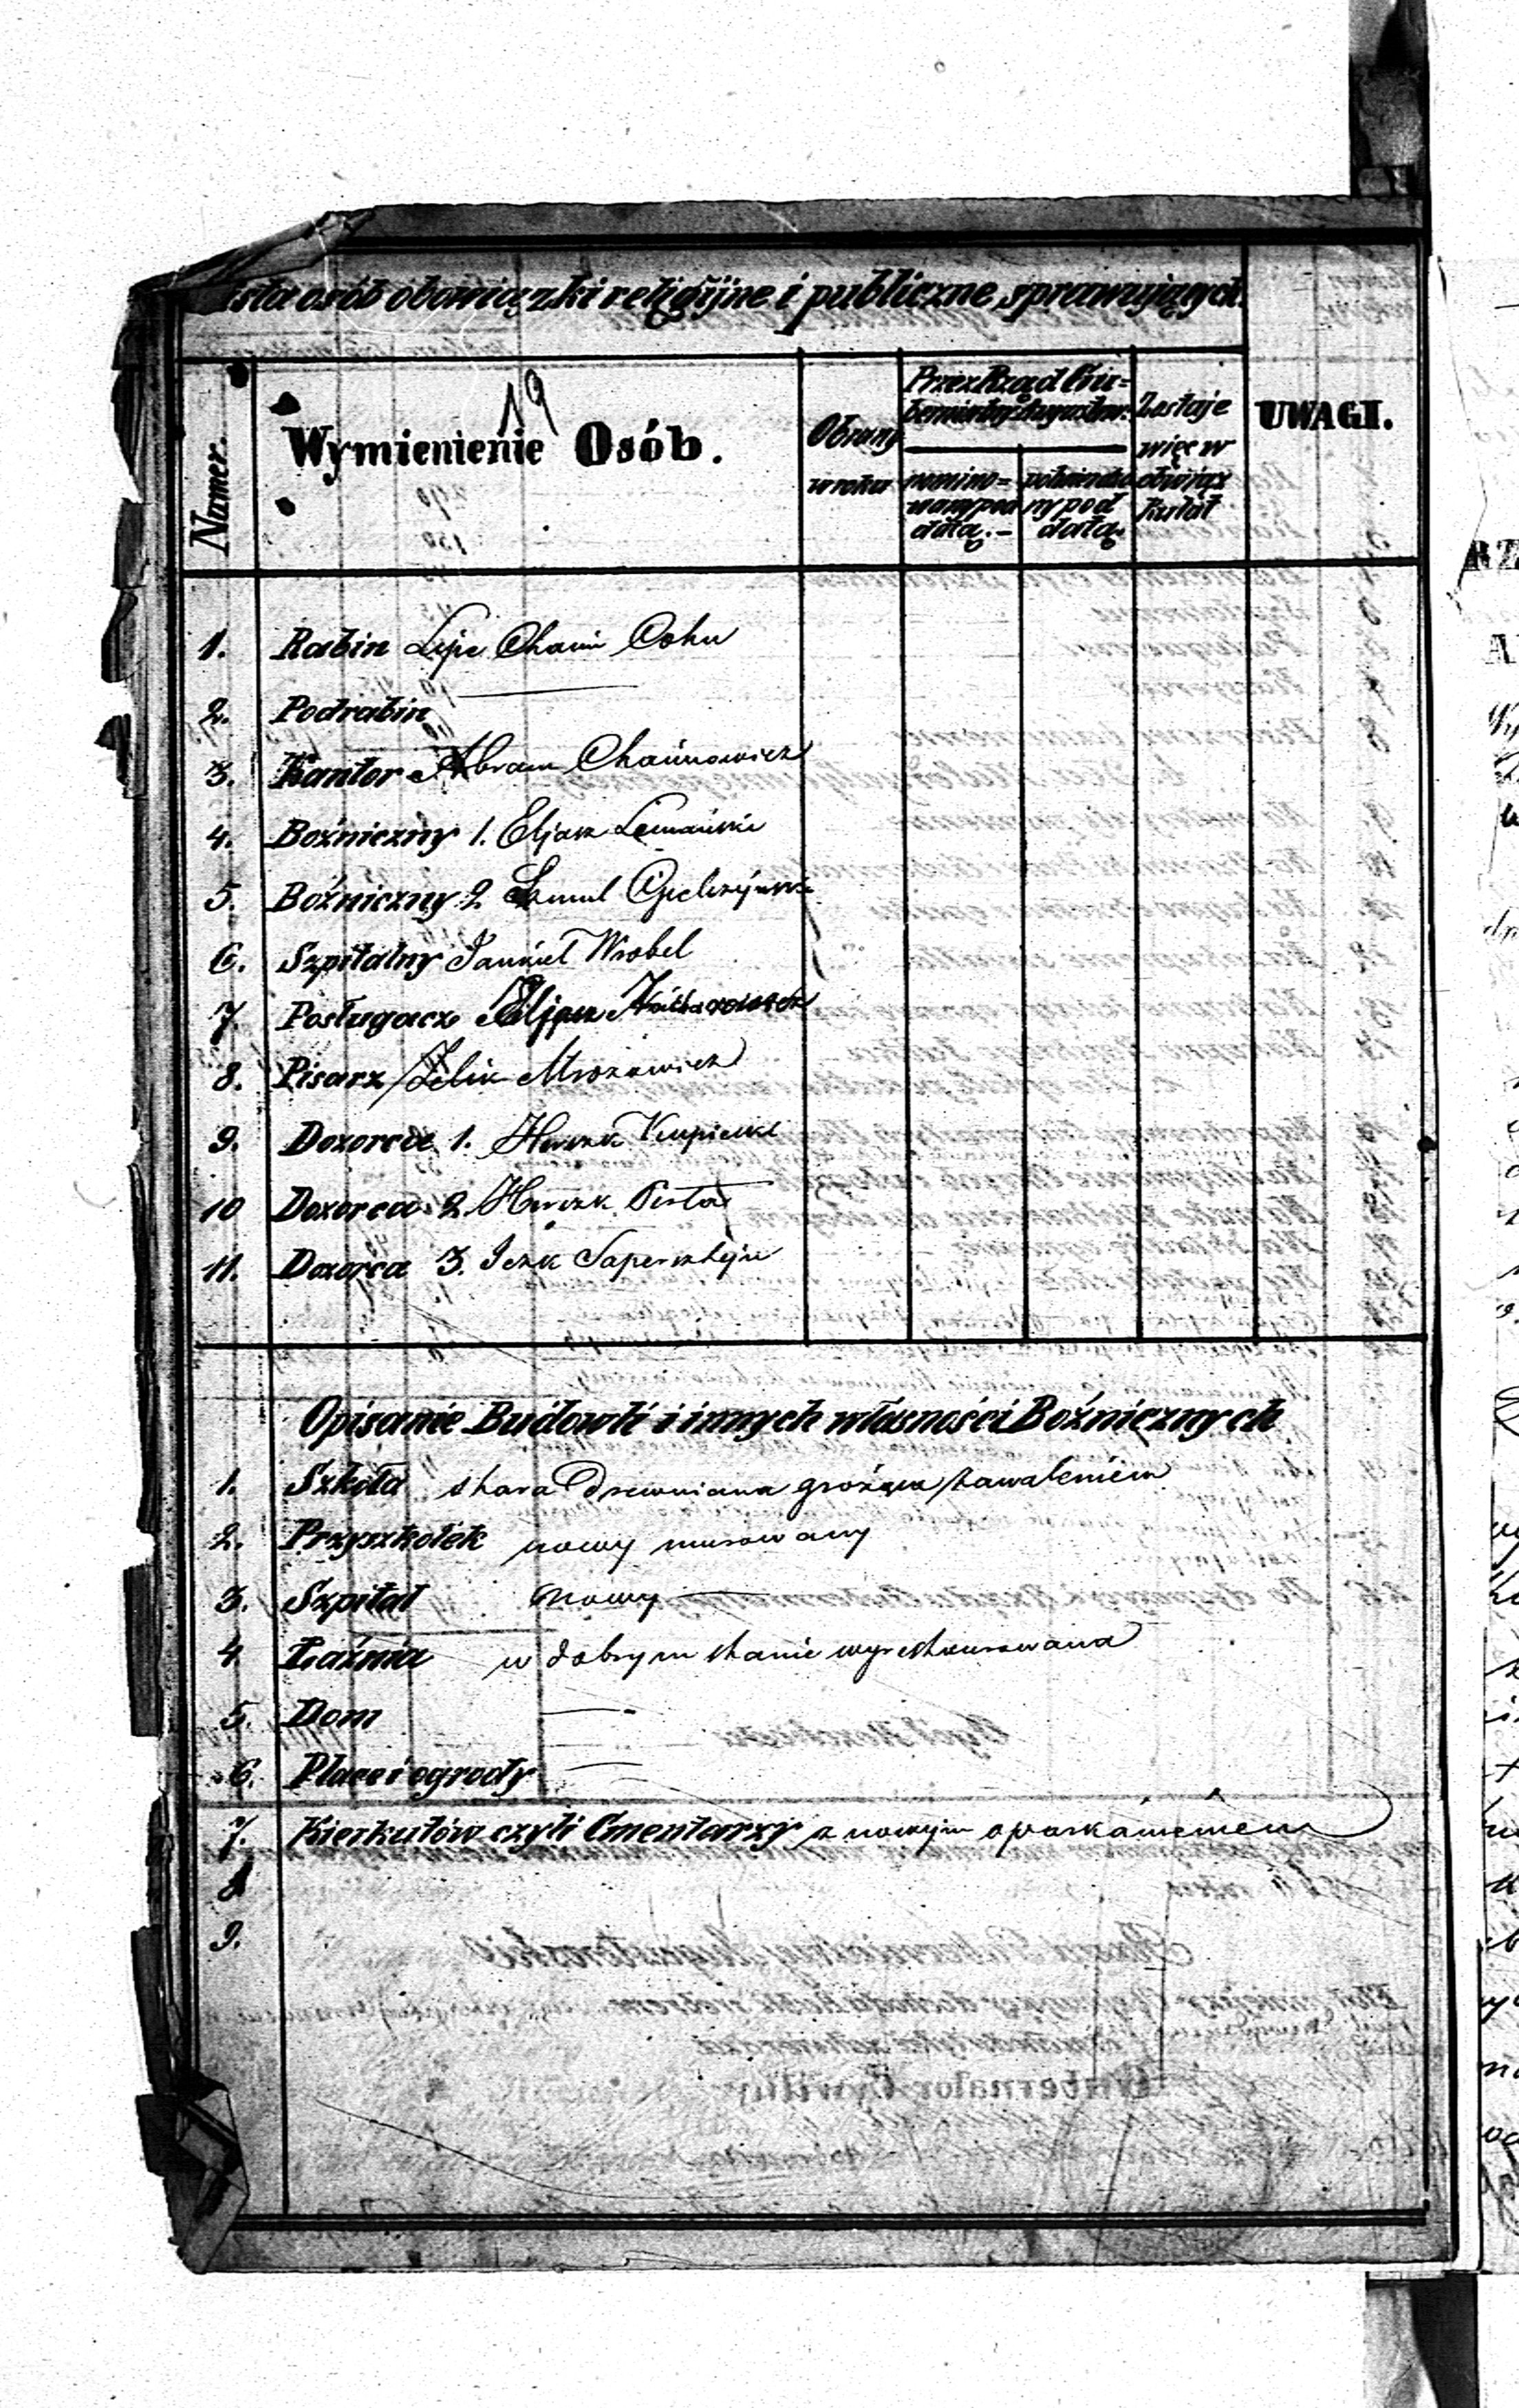 Lista osób obowiązki religijne i publiczne sprawujących.
19
Numer.
Wymienienie Osób.
Obrany w roku
Przez Rząd Gubernialny Augustow.
nominowany pod datą.
potwierdzony pod datą.
Zostaje więc w obowiąz. lat
UWAGI.
1. Rabin Lejc Chaim Cohn
2. Podrabin —
3. Kantor Abram Chaimowicz
4. Bożniczny 1. Eljasz Lemański
5. Bożniczny 2
6. Szpitalny Jankiel Wrobel
7. Posługacz Eljasz
8. Pisarz Zelik Mrozowicz
9. Dozorca 1. Herszk Krupiński
10 Dozorca 2. Herszk Perta
11. Dozorca 3. Icek Spersztejn
Opisanie Budowli i innych własności Bożnicznych
1. Szkoła stara Drewniana grożąca zawaleniem
2. Przyszkołek nowy murowany
3. Szpital nowy —
4. Łaźnia w dobrym stanie wyrestaurowana
5. Dom —
6. Place i ogrody —
7. Kierkutów czyli Cmentarzy z nowym oparkanieniem
8
9.